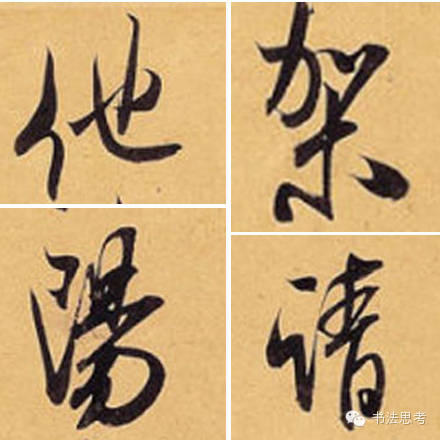 他架
陽请
书法思考